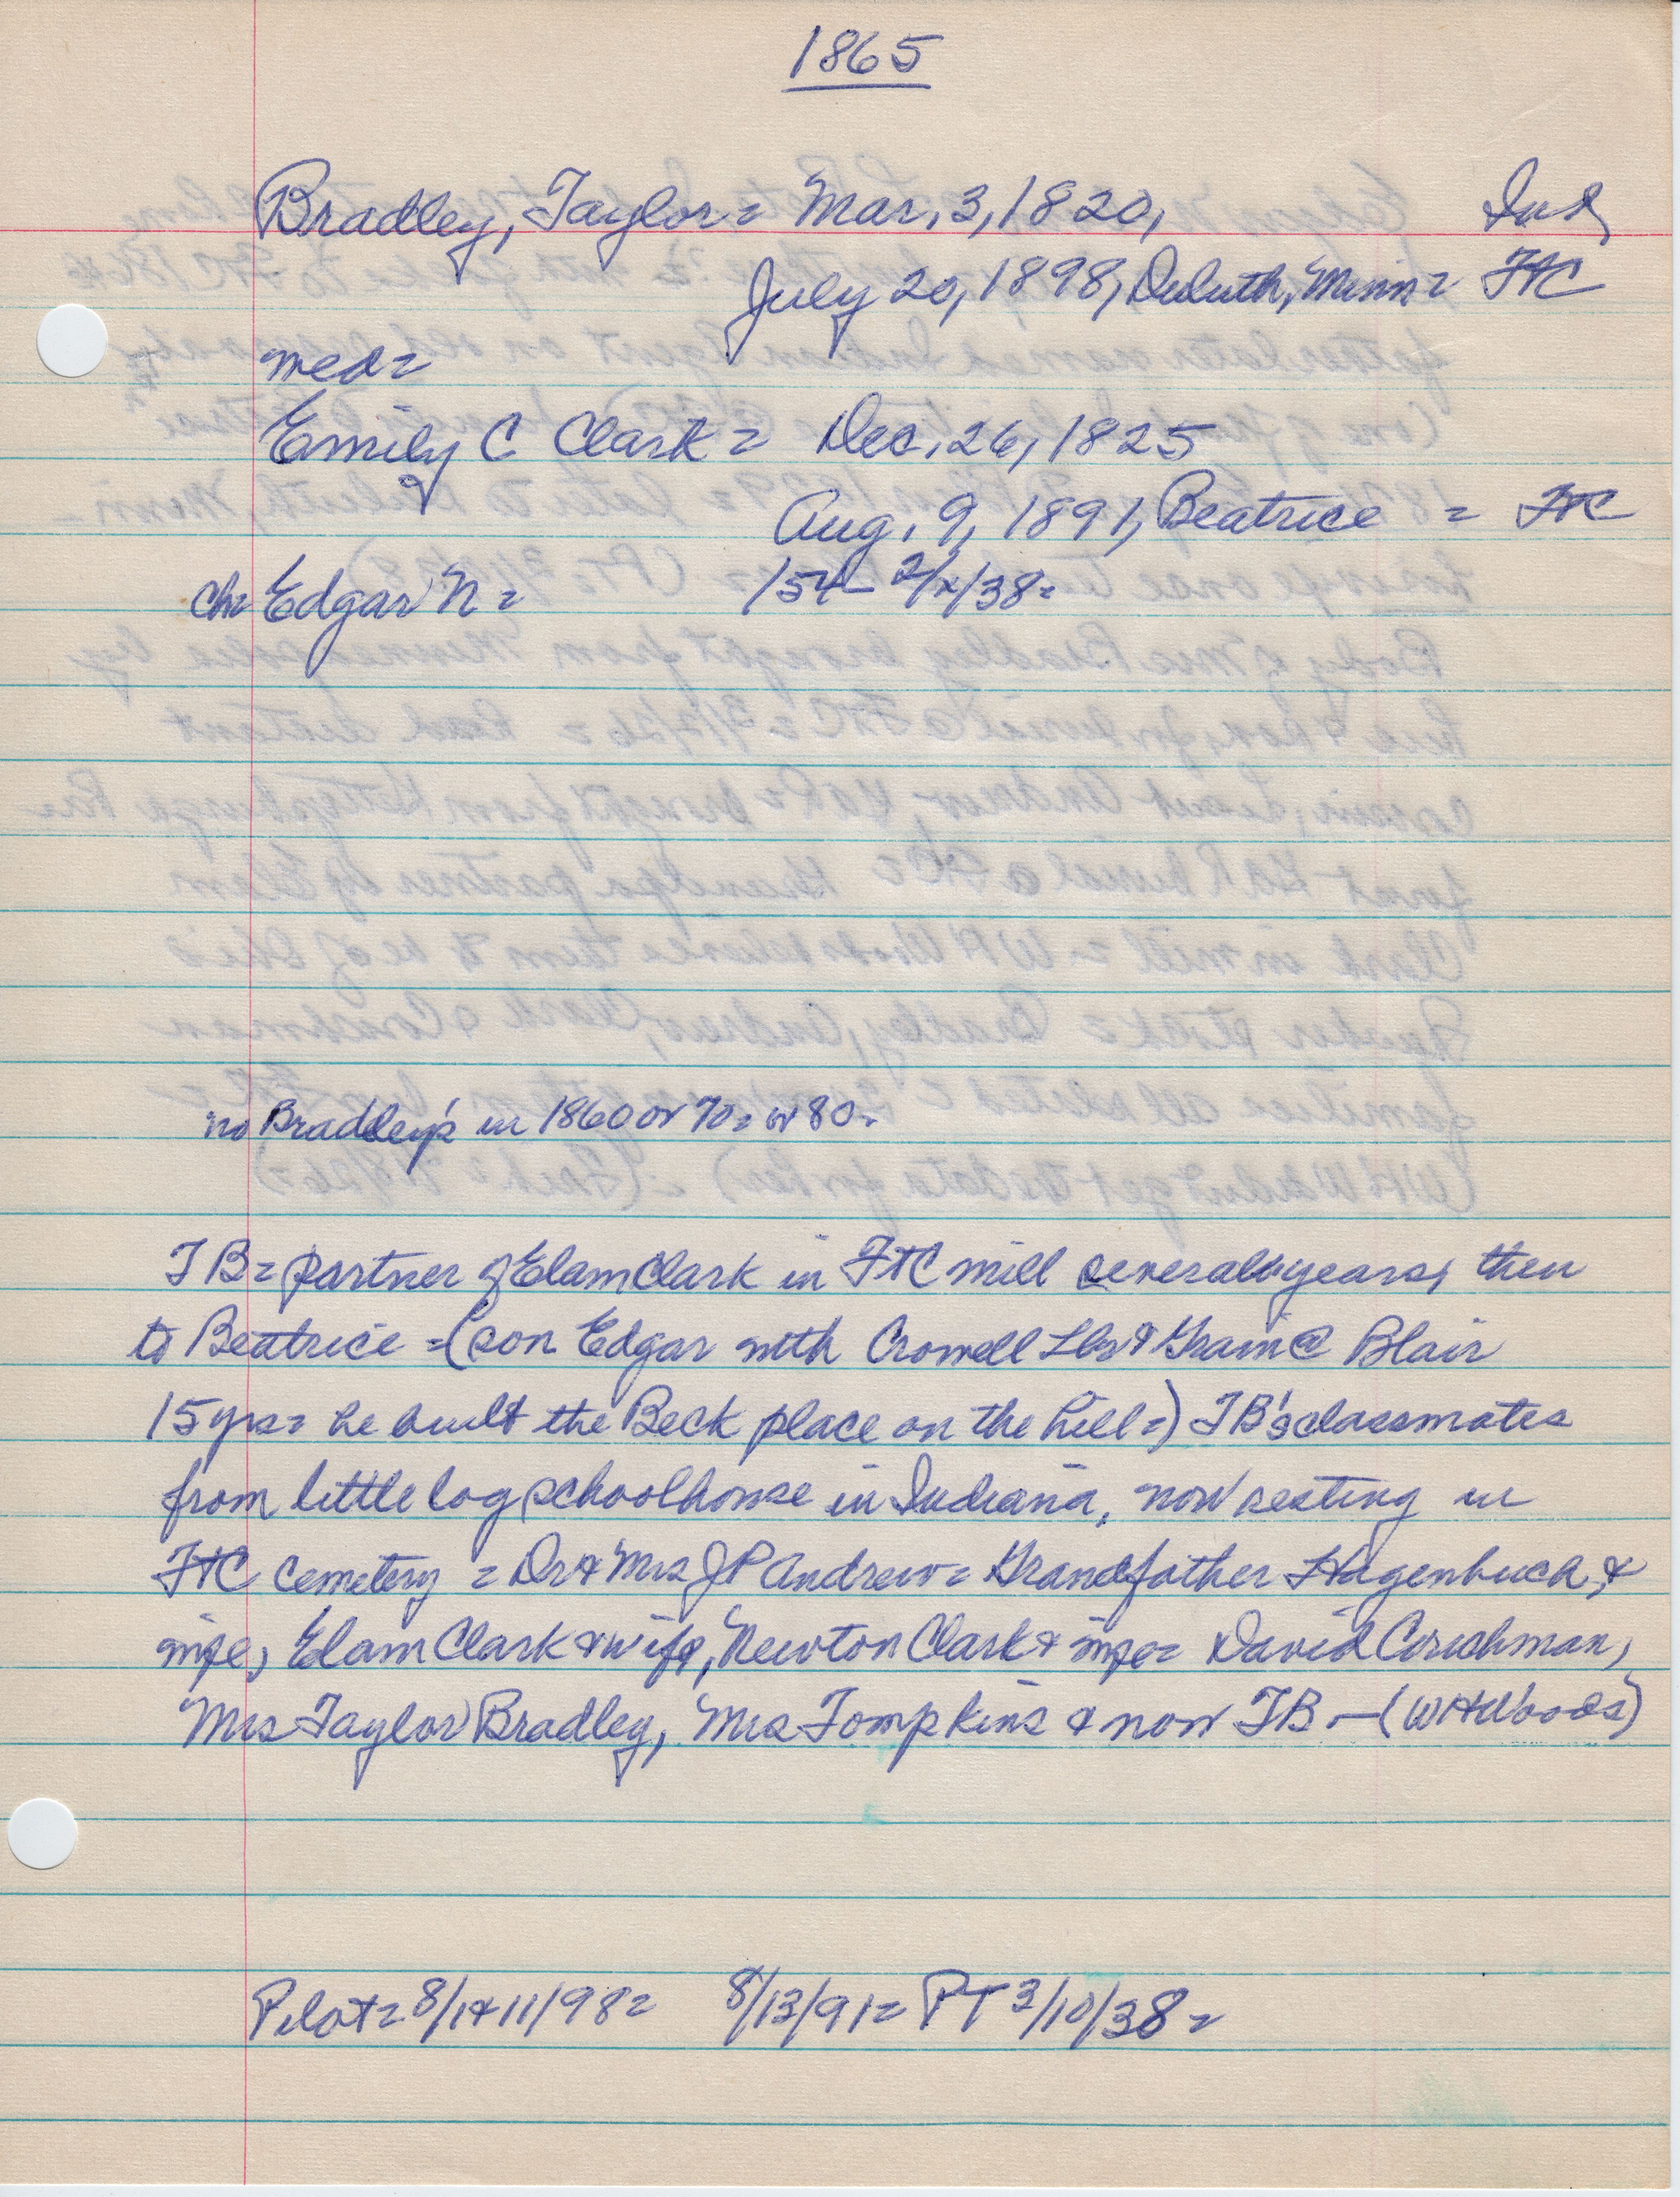 1865
Bradley, Taylor = Mar, 3, 1820, Ind,
July 20, 1898, Duluth, Minn = FtC
med =
Emily C Clark = Dec, 26, 1825
Aug, 9, 1891, Beatrice = FtC
ch = Edgar N =
no Bradley's in 1860 or 70 = or 80 -
TB = partner of Elam Clark in FtC mill several years, then
to Beatrice = (son Edgar with Crowell Lbr & Grain @ Blair
15 yrs = he built the Beck place on the hill =) TB's classmates
from little log schoolhouse in Indiana, now resting in
FtC Cemetery = Dr & Mrs JP Andrew = Grandfather Hagenbuck, &
wife, Elam Clark & wife, Newton Clark & wife = David Couchman,
Mrs Taylor Bradley, Mrs Tompkins & now TB - (WH Woods)
Pilot = 8/1 & 11/98 = 8/13/91 = PT 3/10/38 =